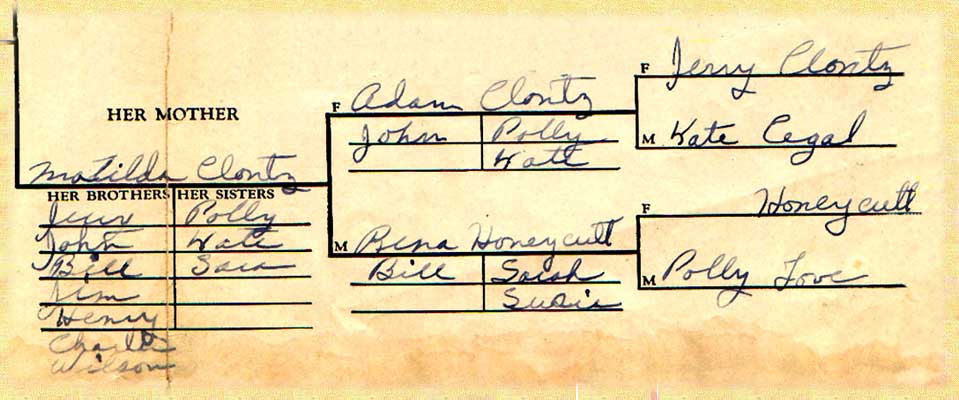 F Jerry Clontz
HER MOTHER
F Adam Clontz
John Polly
M Kate Cegal
Kate
Matilda Clontz
HER BROTHERS HER SISTERS
Jerry Polly
F Honeycutt
John Kate
M Bena Honeycutt
Bill Sara
Bill Sarah
M Polly Love
Jim
Susie
Henry
Charlie
Wilson